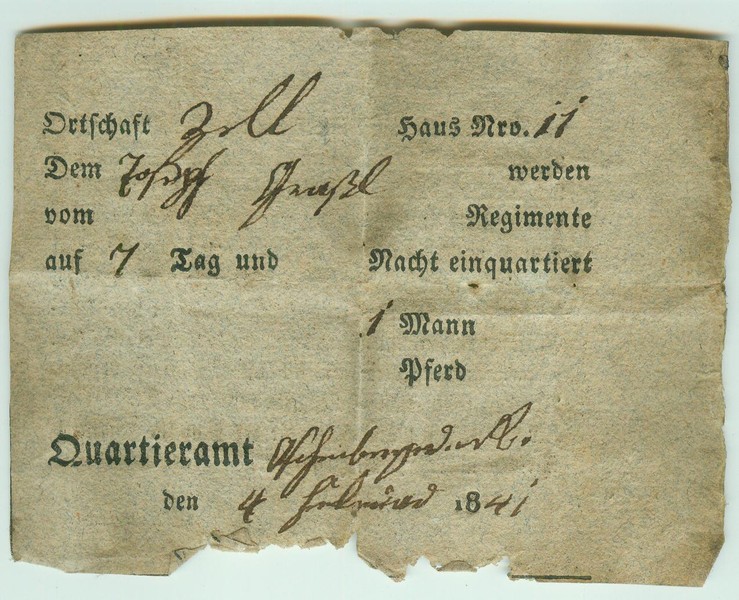 Ortschaft Zell Haus Nro. 11
Dem Joseph werden
vom Regimente
auf 7 Tag und Nacht einquartiert
1 Mann
Pferd
Quartieramt
den 4 Februar 1841